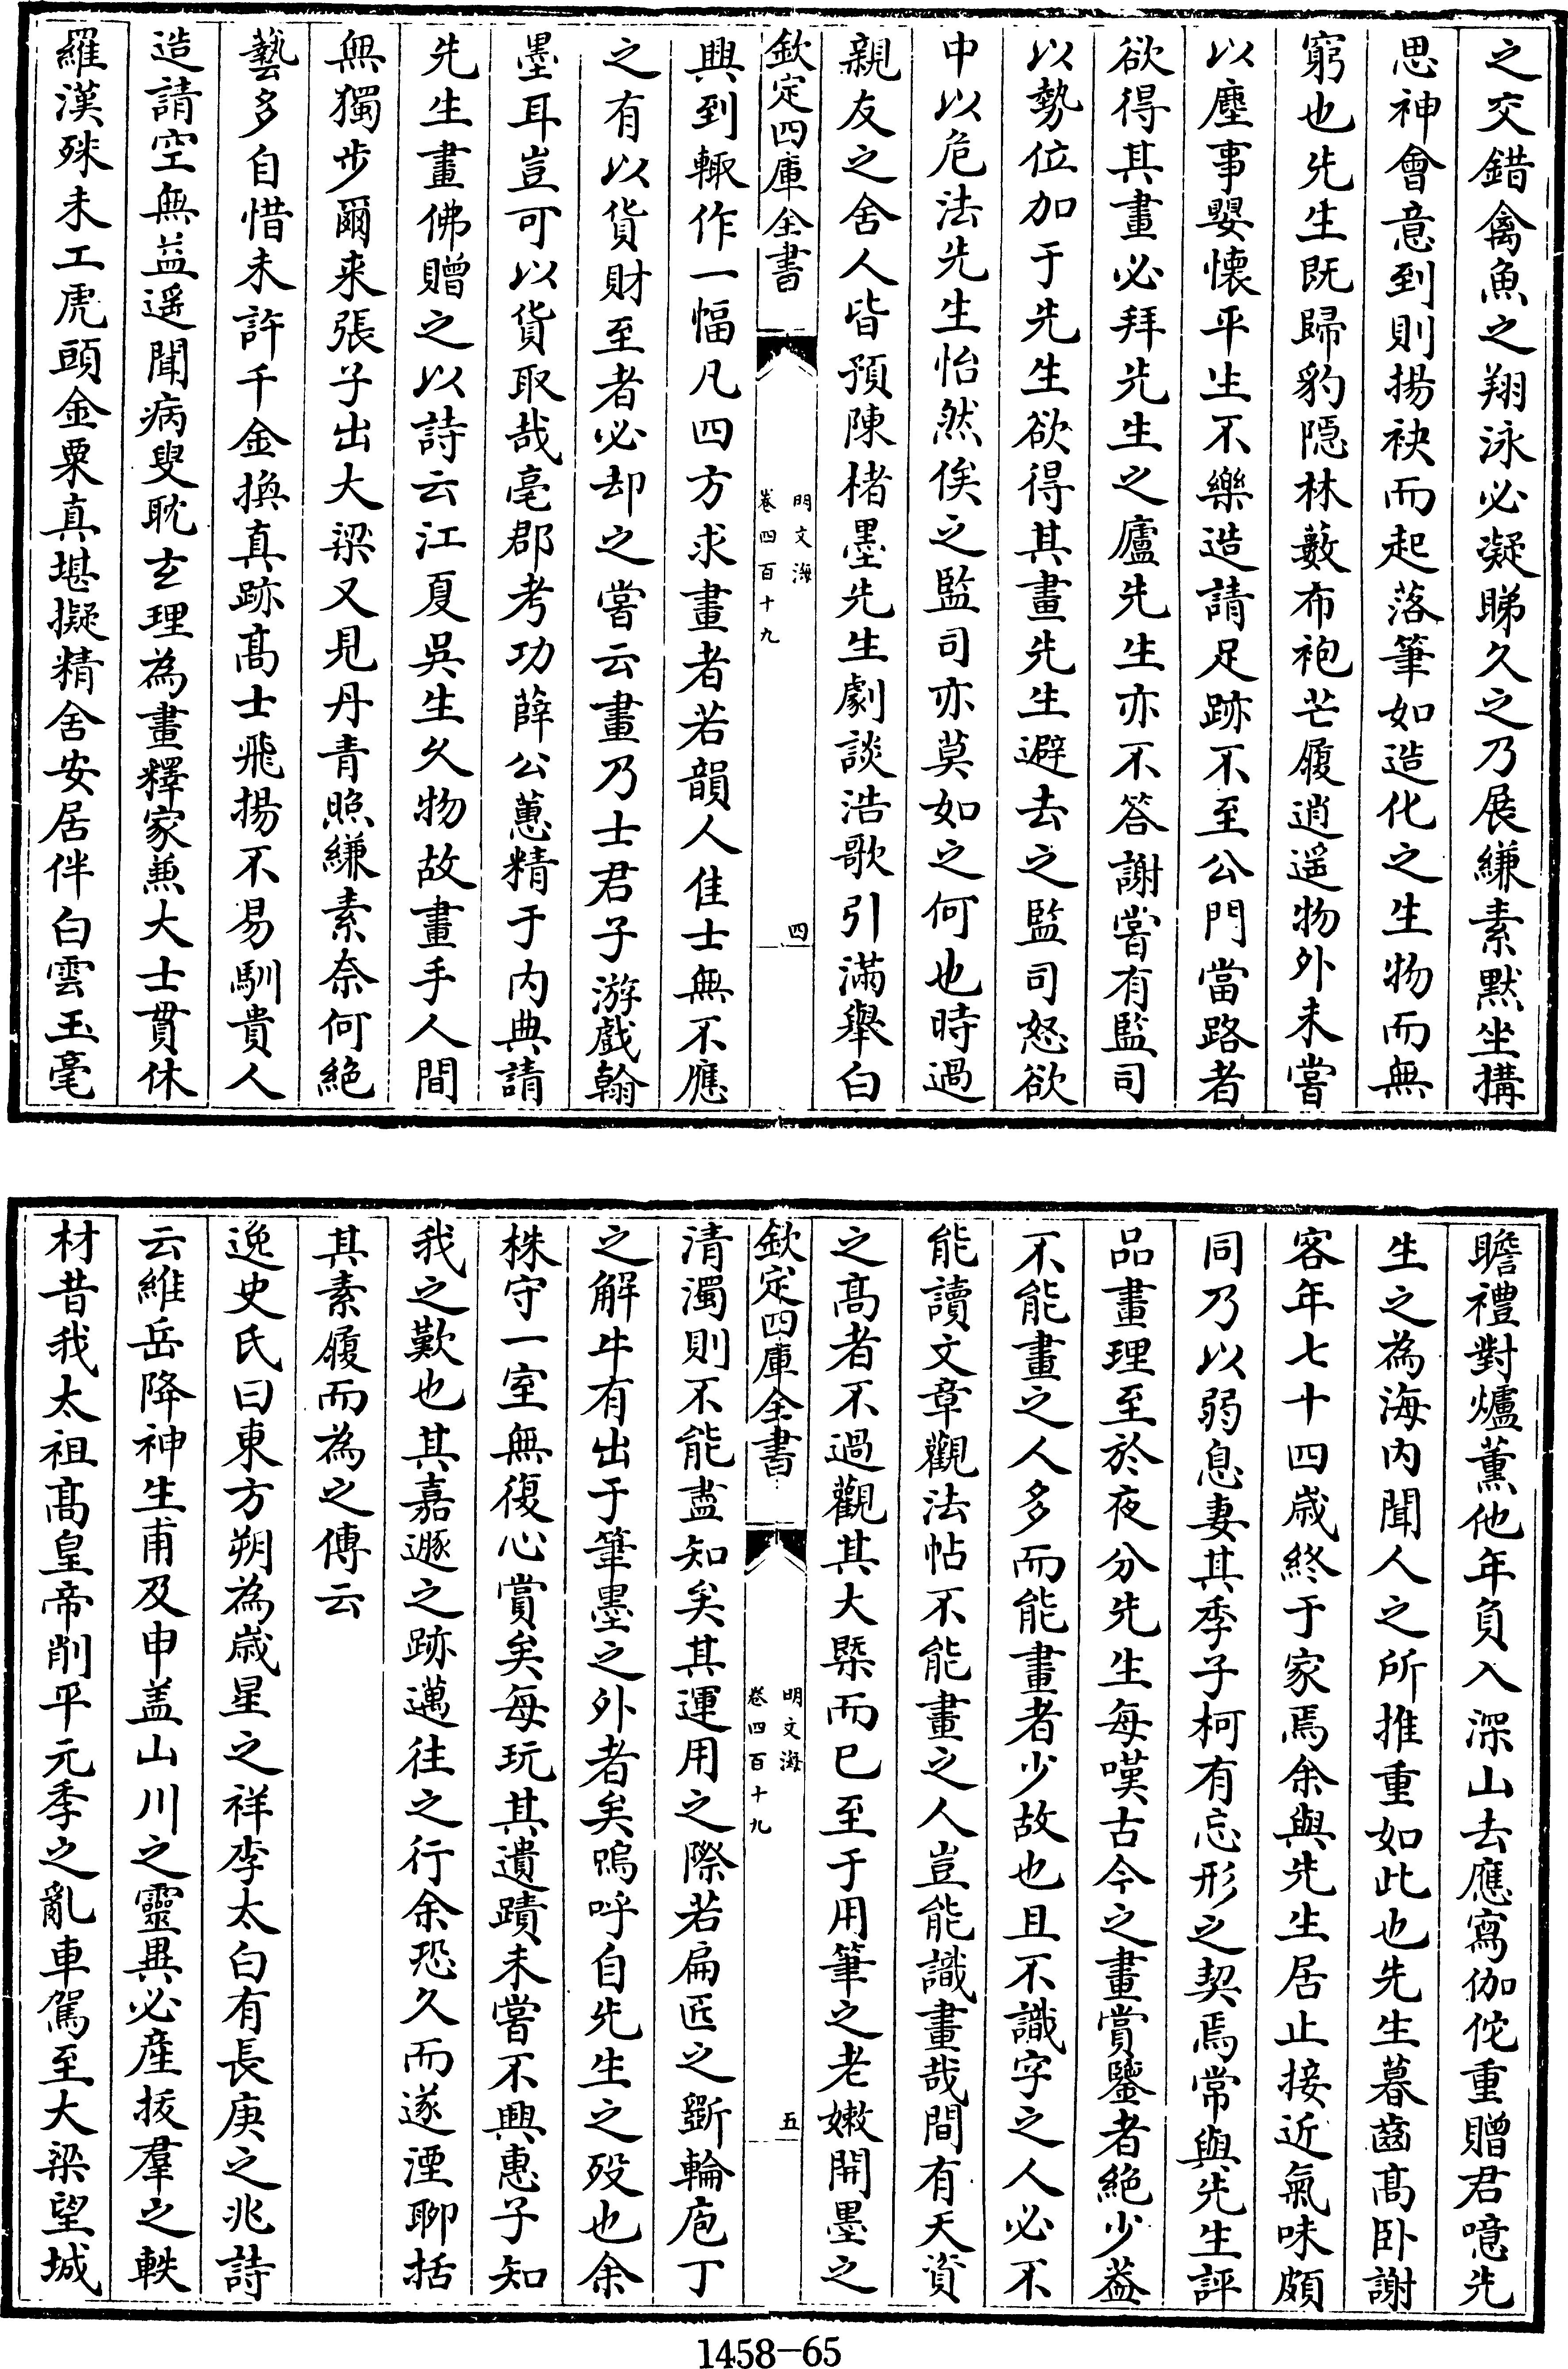 之交錯禽魚之翔泳必凝睇久之乃展縑素默坐搆
思神會意到則揚袂而起落筆如造化之生物而無
窮也先生既歸豹隱林藪布袍芒履逍遥物外未嘗
以塵事嬰懷平生不樂造請足跡不至公門當路者
欲得其畫必拜先生之廬先生亦不答謝嘗有監司
以勢位加于先生欲得其畫先生避去之監司怒欲
中以危法先生怡然俟之監司亦莫如之何也時過
親友之舍人皆預陳楮墨先生劇談浩歌引滿舉白
欽定四庫全書
明文海
卷四百十九
四
興到輙作一幅凡四方求畫者若韻人佳士無不應
之有以貨財至者必却之嘗云畫乃士君子游戲翰
墨耳豈可以貨取哉亳郡考功薛公蕙精于内典請
先生畫佛贈之以詩云江夏吳生久物故畫手人間
無獨步爾来張子出大梁又見丹青照縑素奈何絶
藝多自惜未許千金換真跡髙士飛揚不易馴貴人
造請空無益遥聞病叟耽玄理為畫釋家兼大士貫休
羅漢殊未工虎頭金粟真堪擬精舍安居伴白雲玉毫
瞻禮對爐薰他年負入深山去應寫伽佗重贈君噫先
生之為海内聞人之所推重如此也先生暮齒髙卧謝
客年七十四歳終于家焉余與先生居止接近氣味頗
同乃以弱息妻其季子柯有忘形之契焉常與先生評
品畫理至於夜分先生每嘆古今之畫賞鑒者絶少葢
不能畫之人多而能畫者少故也且不識字之人必不
能讀文章觀法帖不能畫之人豈能識畫哉間有天資
之髙者不過觀其大槩而已至于用筆之老嫩開墨之
欽定四庫全書
明文海
卷四百十九
五
清濁則不能盡知矣其運用之際若扁匠之斵輪庖丁
之解牛有出于筆墨之外者矣嗚呼自先生之殁也余
株守一室無復心賞矣每玩其遺蹟未嘗不興惠子知
我之歎也其嘉遯之跡邁往之行余恐久而遂湮聊括
其素履而為之傳云
逸史氏曰東方朔為歳星之祥李太白有長庚之兆詩
云維岳降神生甫及申盖山川之靈異必産拔羣之軼
材昔我太祖髙皇帝削平元季之亂車駕至大梁望城
1458-65